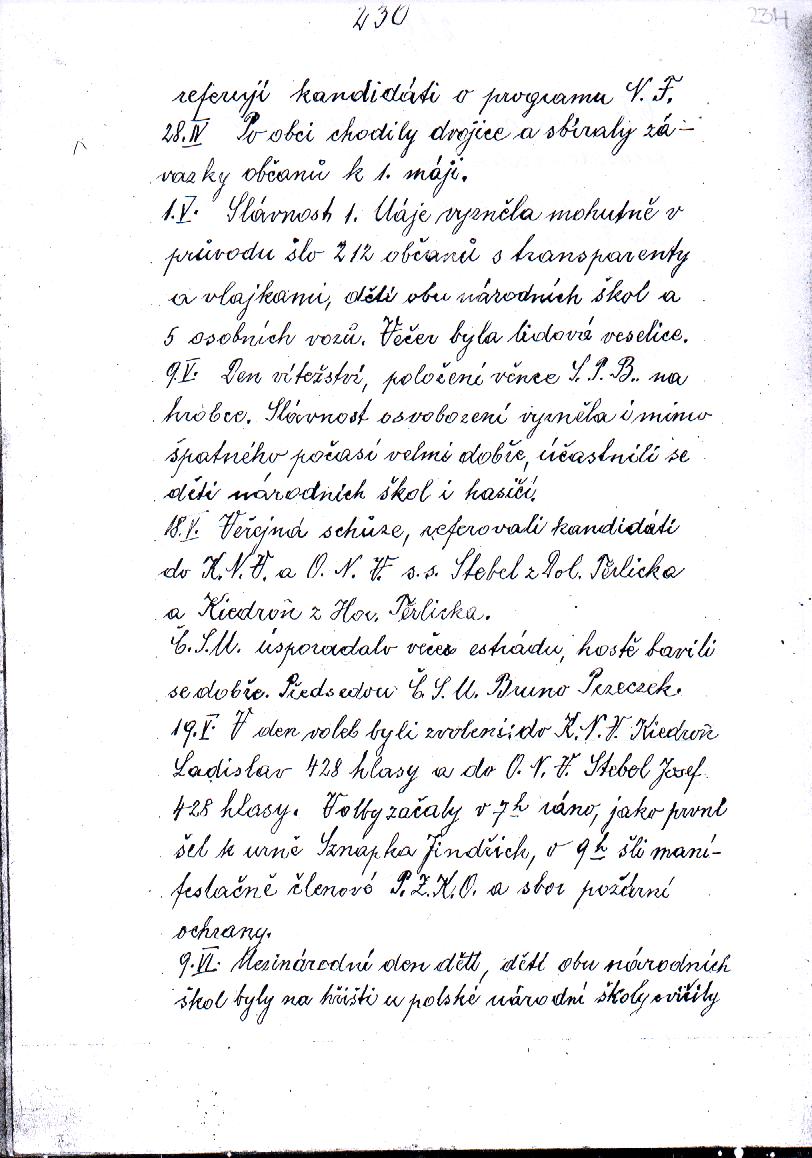 230
234
referují kandidáti o programu N. F.
28.IV Po obci chodily dvojice a sbíraly zá-
vazky občanů k 1. máji.
1.V. Slávnost 1. Máje vyzněla mohutně v
průvodu šlo 212 občanů s transparenty
a vlajkami, děti obu národních škol a
5 osobních vozů. Večer byla lidová veselice.
9.V. Den vítežství, položení věnce S. P. B.. na
hrobce. Slávnost osvobození vyzněla i mimo
špatného počasí velmi dobře, účastnili se
děti národních škol i hasičí.
18.V. Veřejná schůze, referovali kandidáti
do K. N. V. a O. N. V. s.s. Stebel z Dol. Těrlicka
a Kiedroň z Hor. Těrlicka.
Č. S. M. úsporadalo večer estrádu, hostě bavili
se dobře. Předsedou Č. S. M. Bruno Pszeczek.
19.V. V den voleb byli zvoleni: do K. N. V. Kiedroň
Ladislav 428 hlasy a do O. N. V. Stebel Josef
428 hlasy. Volby začaly v 7h ráno, jako první
šel k urně Sznapka Jindřich, v 9h šli mani-
festačně členové P. Z. K. O. a sbor požární
ochrany.
9.VI. Mezinárodní den dětí, děti obu národních
škol byly na hřišti u polské národní školy cvičily